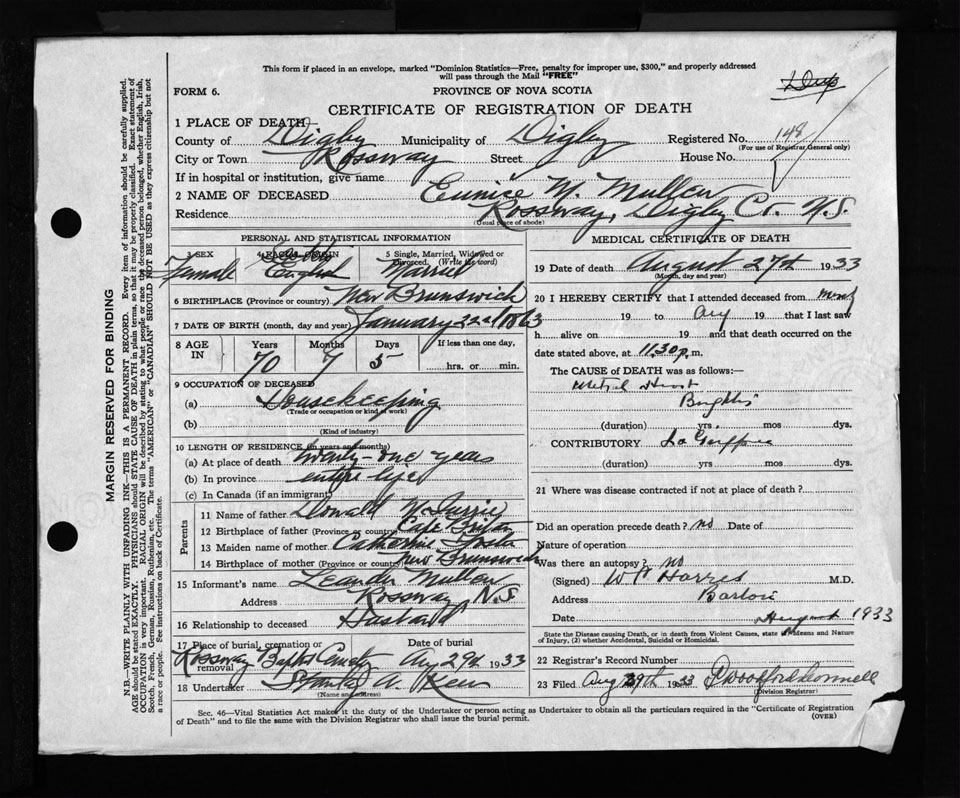 This form if placed in an envelope, marked "Dominion Statistics—Free, penalty for improper use, $300," and properly addressed
will pass through the Mail "FREE"
FORM 6.
PROVINCE OF NOVA SCOTIA
CERTIFICATE OF REGISTRATION OF DEATH
1 PLACE OF DEATH
County of Digby Municipality of Digby Registered No. 148
(For use of Registrar General only)
City or Town Rossway Street House No.
If in hospital or institution, give name
2 NAME OF DECEASED Eunice W. Mullen
Residence Rossway, Digby Co. N.S.
(Usual place of abode)
PERSONAL AND STATISTICAL INFORMATION
3 SEX 4 RACIAL ORIGIN 5 Single, Married, Widowed or
Divorced. (Write the word)
Female English Married
6 BIRTHPLACE (Province or country) New Brunswick
7 DATE OF BIRTH (month, day and year) January 22nd 1863
8 AGE IN Years Months Days If less than one day,
70 7 5 hrs. or min.
9 OCCUPATION OF DECEASED
(a) Housekeeping
(Trade or occupation or kind of work)
(b)
(Kind of industry)
10 LENGTH OF RESIDENCE (in years and months)
(a) At place of death twenty-one years
(b) In province entire life
(c) In Canada (if an immigrant)
Parents
11 Name of father Donald
12 Birthplace of father (Province or country) Cape Briton
13 Maiden name of mother Catherine
14 Birthplace of mother (Province or country) New Brunswick
15 Informant's name Leander Mullen
Address Rossway N.S.
16 Relationship to deceased Husband
17 Place of burial, cremation or removal Date of burial
Rossway Baptist Aug 29th 1933
18 Undertaker Stanley A.
(Name and address)
MEDICAL CERTIFICATE OF DEATH
19 Date of death August 27th 1933
(Month, day and year)
20 I HEREBY CERTIFY that I attended deceased from
19 to Aug 19 that I last saw
h alive on 19 and that death occurred on
date stated above, at 11.30 p. m.
The CAUSE of DEATH was as follows:—
Heart
Brights
(duration) yrs. mos dys.
CONTRIBUTORY La Grippe
(duration) yrs mos dys.
21 Where was disease contracted if not at place of death?
Did an operation precede death? no Date of
Nature of operation
Was there an autopsy? no
(Signed) M.D.
Address Barton
Date August 1933
State the Disease causing Death, or in death from Violent Causes, state (1) Means and Nature
of Injury, (2) whether Accidental, Suicidal or Homicidal.
22 Registrar's Record Number
23 Filed Aug 29th 1933
(Division Registrar)
Sec. 46—Vital Statistics Act makes it the duty of the Undertaker or person acting as Undertaker to obtain all the particulars required in the "Certificate of Registration
of Death" and to file the same with the Division Registrar who shall issue the burial permit.
(OVER)
MARGIN RESERVED FOR BINDING
N.B.—WRITE PLAINLY WITH UNFADING INK—THIS IS A PERMANENT RECORD. Every item of information should be carefully supplied.
AGE should be stated EXACTLY. PHYSICIANS should STATE CAUSE OF DEATH in plain terms, so that it may be properly classified. Exact statement of
OCCUPATION is very important. RACIAL ORIGIN will be described by stating to what people or race the deceased person belonged, whether English, Irish,
Scotch, French, German, Russian, Ruthenian, etc. The terms "AMERICAN" or "CANADIAN" SHOULD NOT BE USED as they express citizenship but not
a race or people. See instructions on back of Certificate.